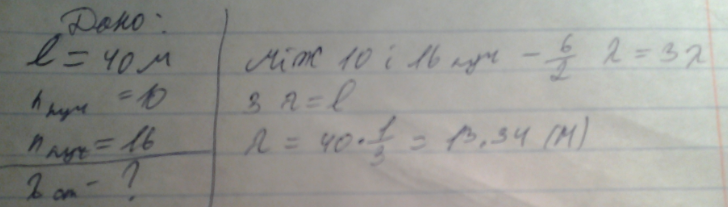 Дано:
l = 40 м
n пуч = 10
n пуч = 16
λ ст - ?
між 10 і 16 пуч - 6/2 λ = 3λ
3 λ = l
λ = 40 · 1/3 = 13,34 (м)